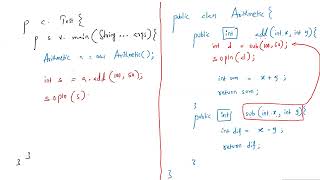 p c. Test {
p s v. main (String ... args) {
Arithmetic a = new Arithmetic();
int s = a.add(100, 50);
sopln(s).
}
}
public class Arithmetic {
public int add(int x, int y) {
int d = sub(100, 50);
sopln(d);
int sum = x + y;
return sum;
}
public int sub(int x, int y) {
int dif = x - y;
return dif;
}
}